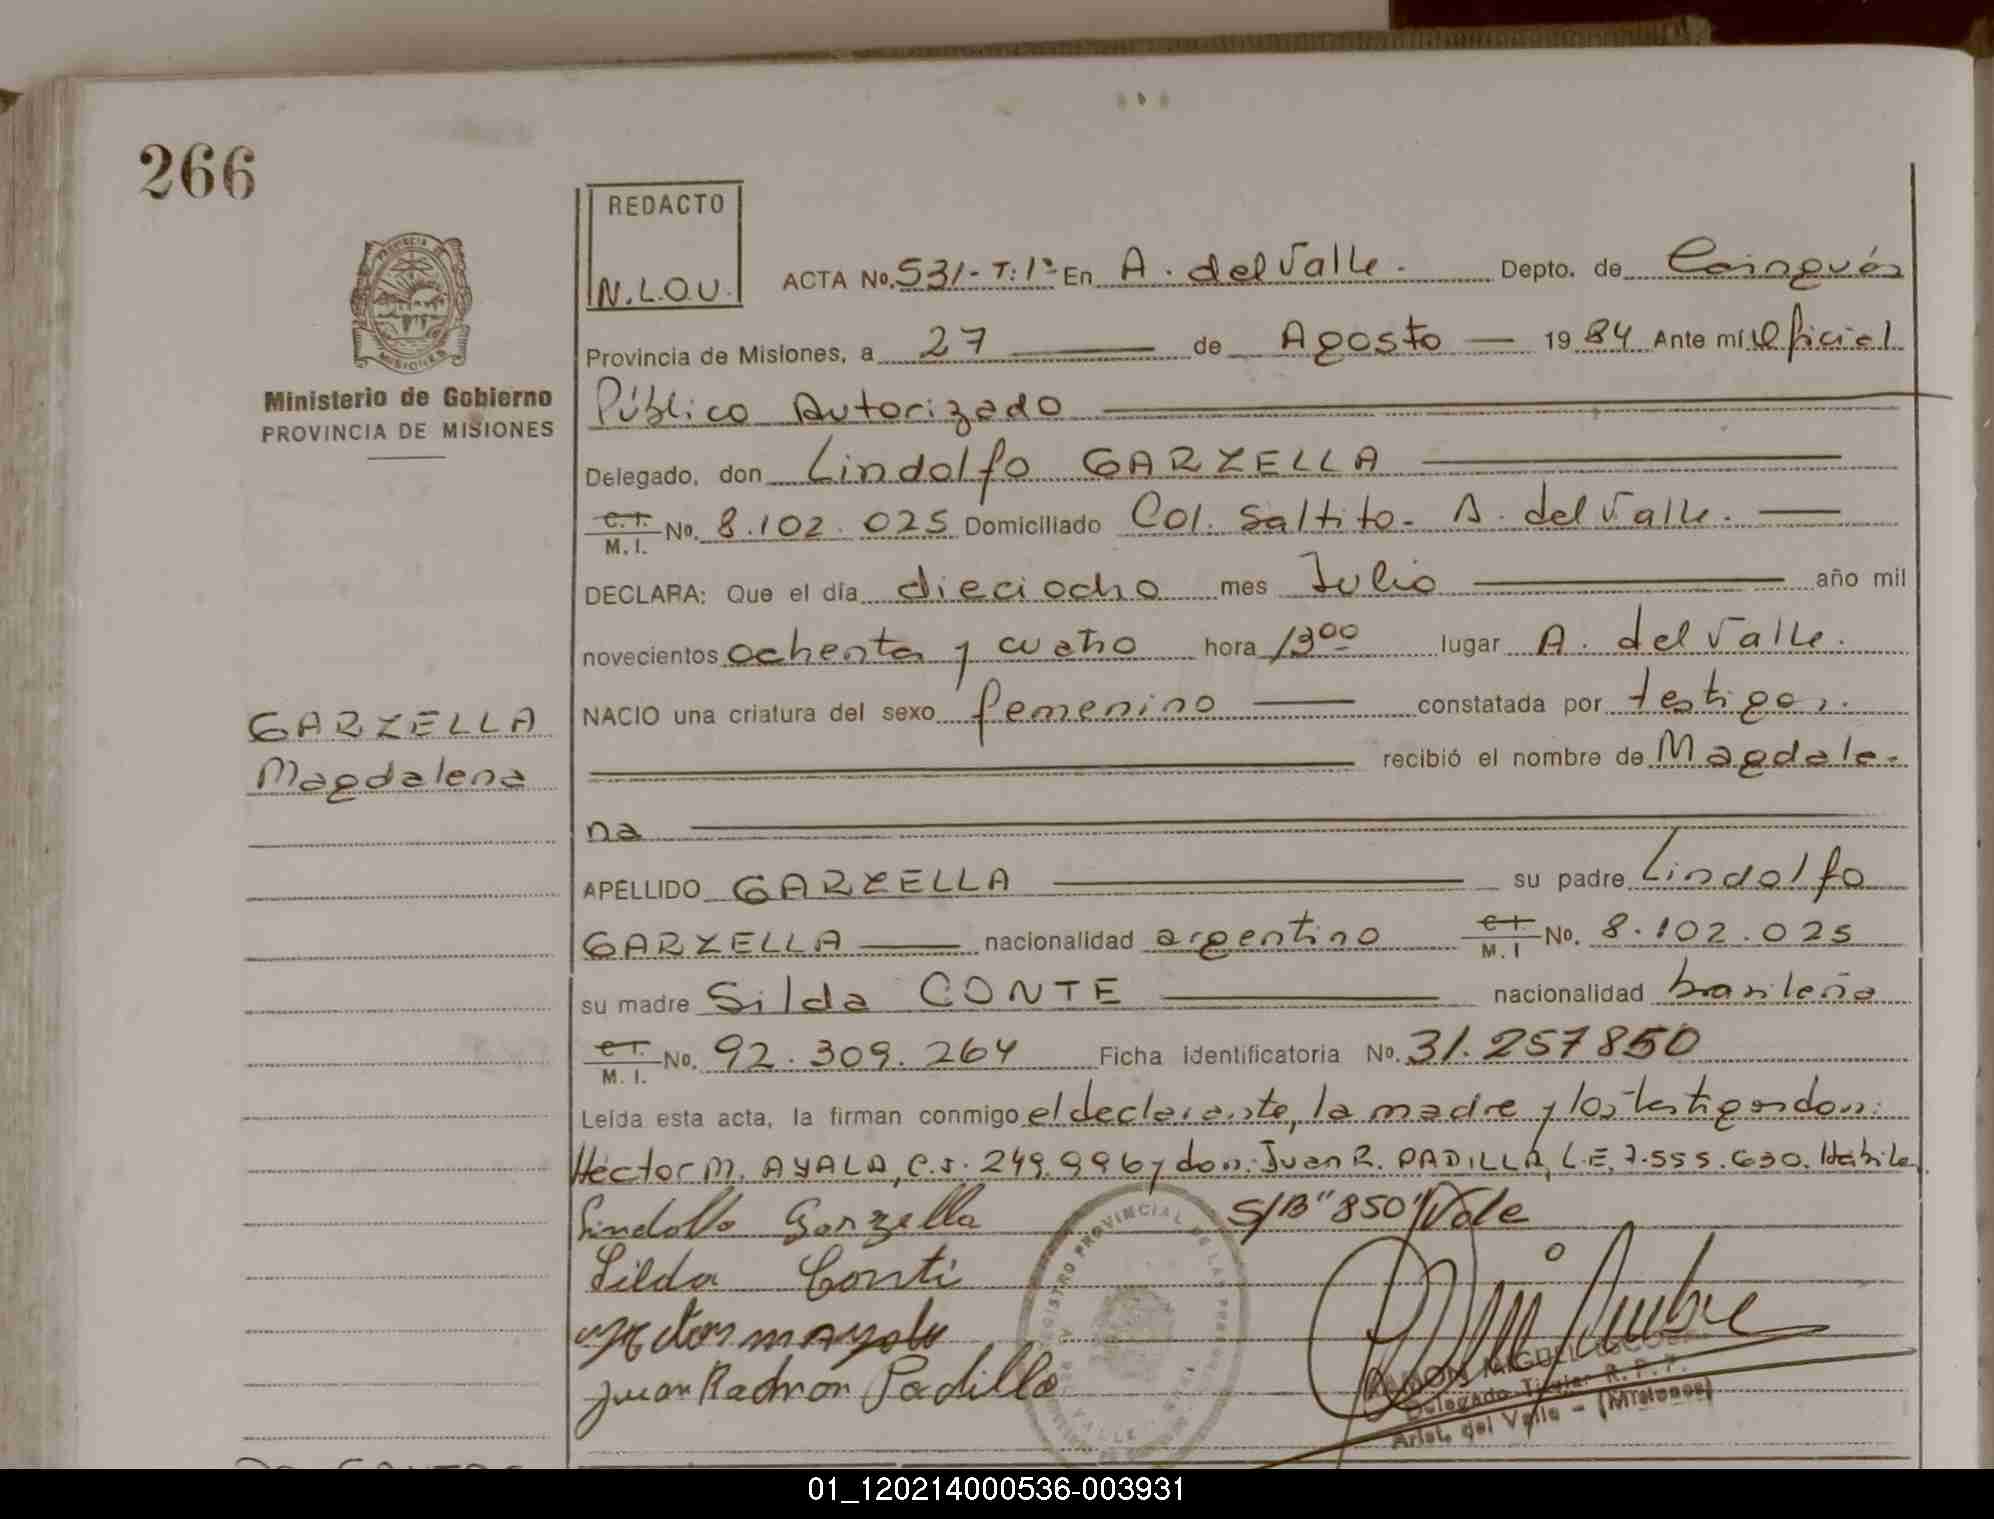 266
REDACTO
N.L.O.U.
PROVINCIA DE
MISIONES
Ministerio de Gobierno
PROVINCIA DE MISIONES
ACTA No. 531-T:1º En A. del Valle. Depto. de Cainguás
Provincia de Misiones, a 27 de Agosto 1984 Ante mí Oficial
Público Autorizado
Delegado, don Lindolfo GARZELLA
C.I. M.I. No. 8.102.025 Domiciliado Col. Saltito- A. del Valle.
DECLARA: Que el día dieciocho mes Julio año mil
novecientos ochenta y cuatro hora 13 00 lugar A. del Valle.
NACIO una criatura del sexo femenino constatada por testigos.
recibió el nombre de Magdale-
na
GARZELLA
Magdalena
APELLIDO GARZELLA su padre Lindolfo
GARZELLA nacionalidad argentino C.I. M.I No. 8.102.025
su madre Silda CONTE nacionalidad brasileña
C.I. M.I. No. 92.309.264 Ficha identificatoria No. 31.257850
Leída esta acta, la firman conmigo el declarante, la madre y los testigos don:
Héctor M. AYALA, C.I. 249.996 y don: Juan R. PADILLA, L.E. 7.555.630. Hábiles
Lindolfo Garzella S/B "850" Vale
Silda Conti
Hector m ayala
Juan Ramon Padilla
REGISTRO PROVINCIAL DE LAS PERSONAS
VALLE
RAMON MIGUEL
Delegado Titular R.P.P.
Arist. del Valle - (Misiones)
01_120214000536-003931